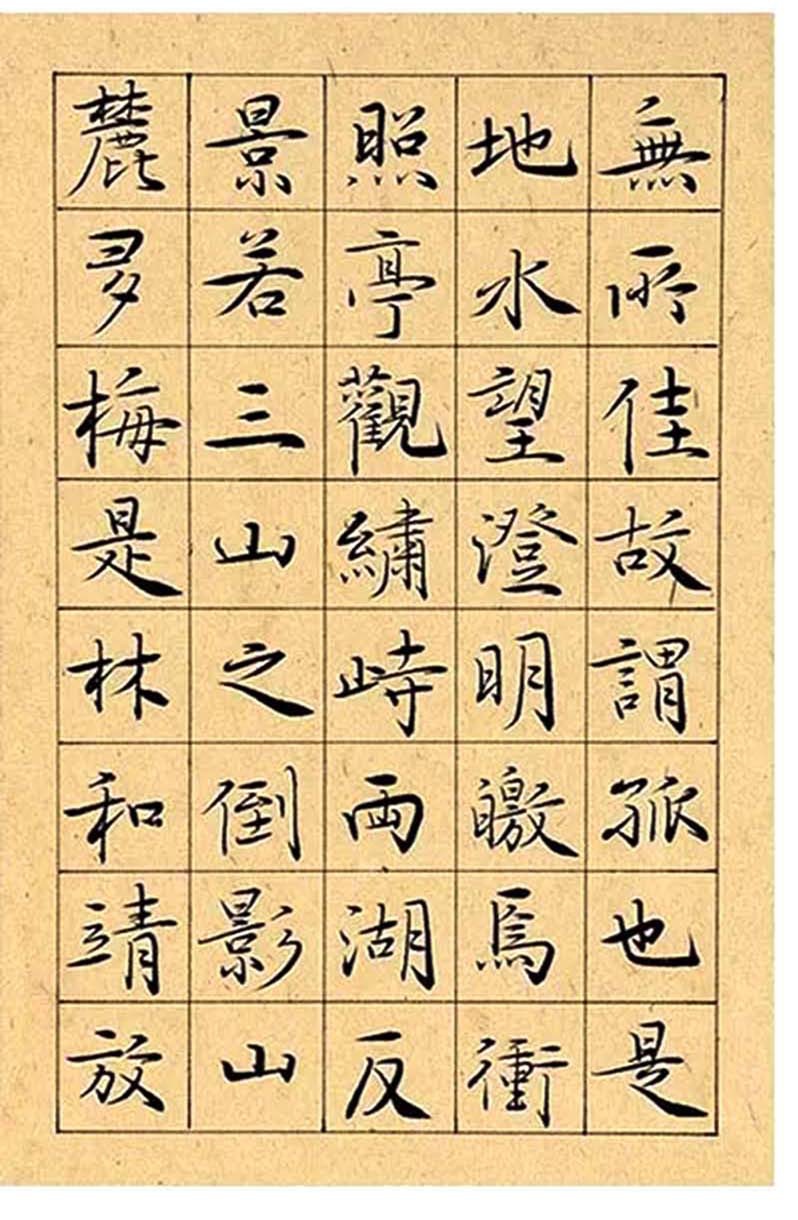 無所佳故謂孤也是
地水望澄明皦焉衝
照亭觀繡峙両湖反
景若三山之倒影山
麓多梅是林和靖放